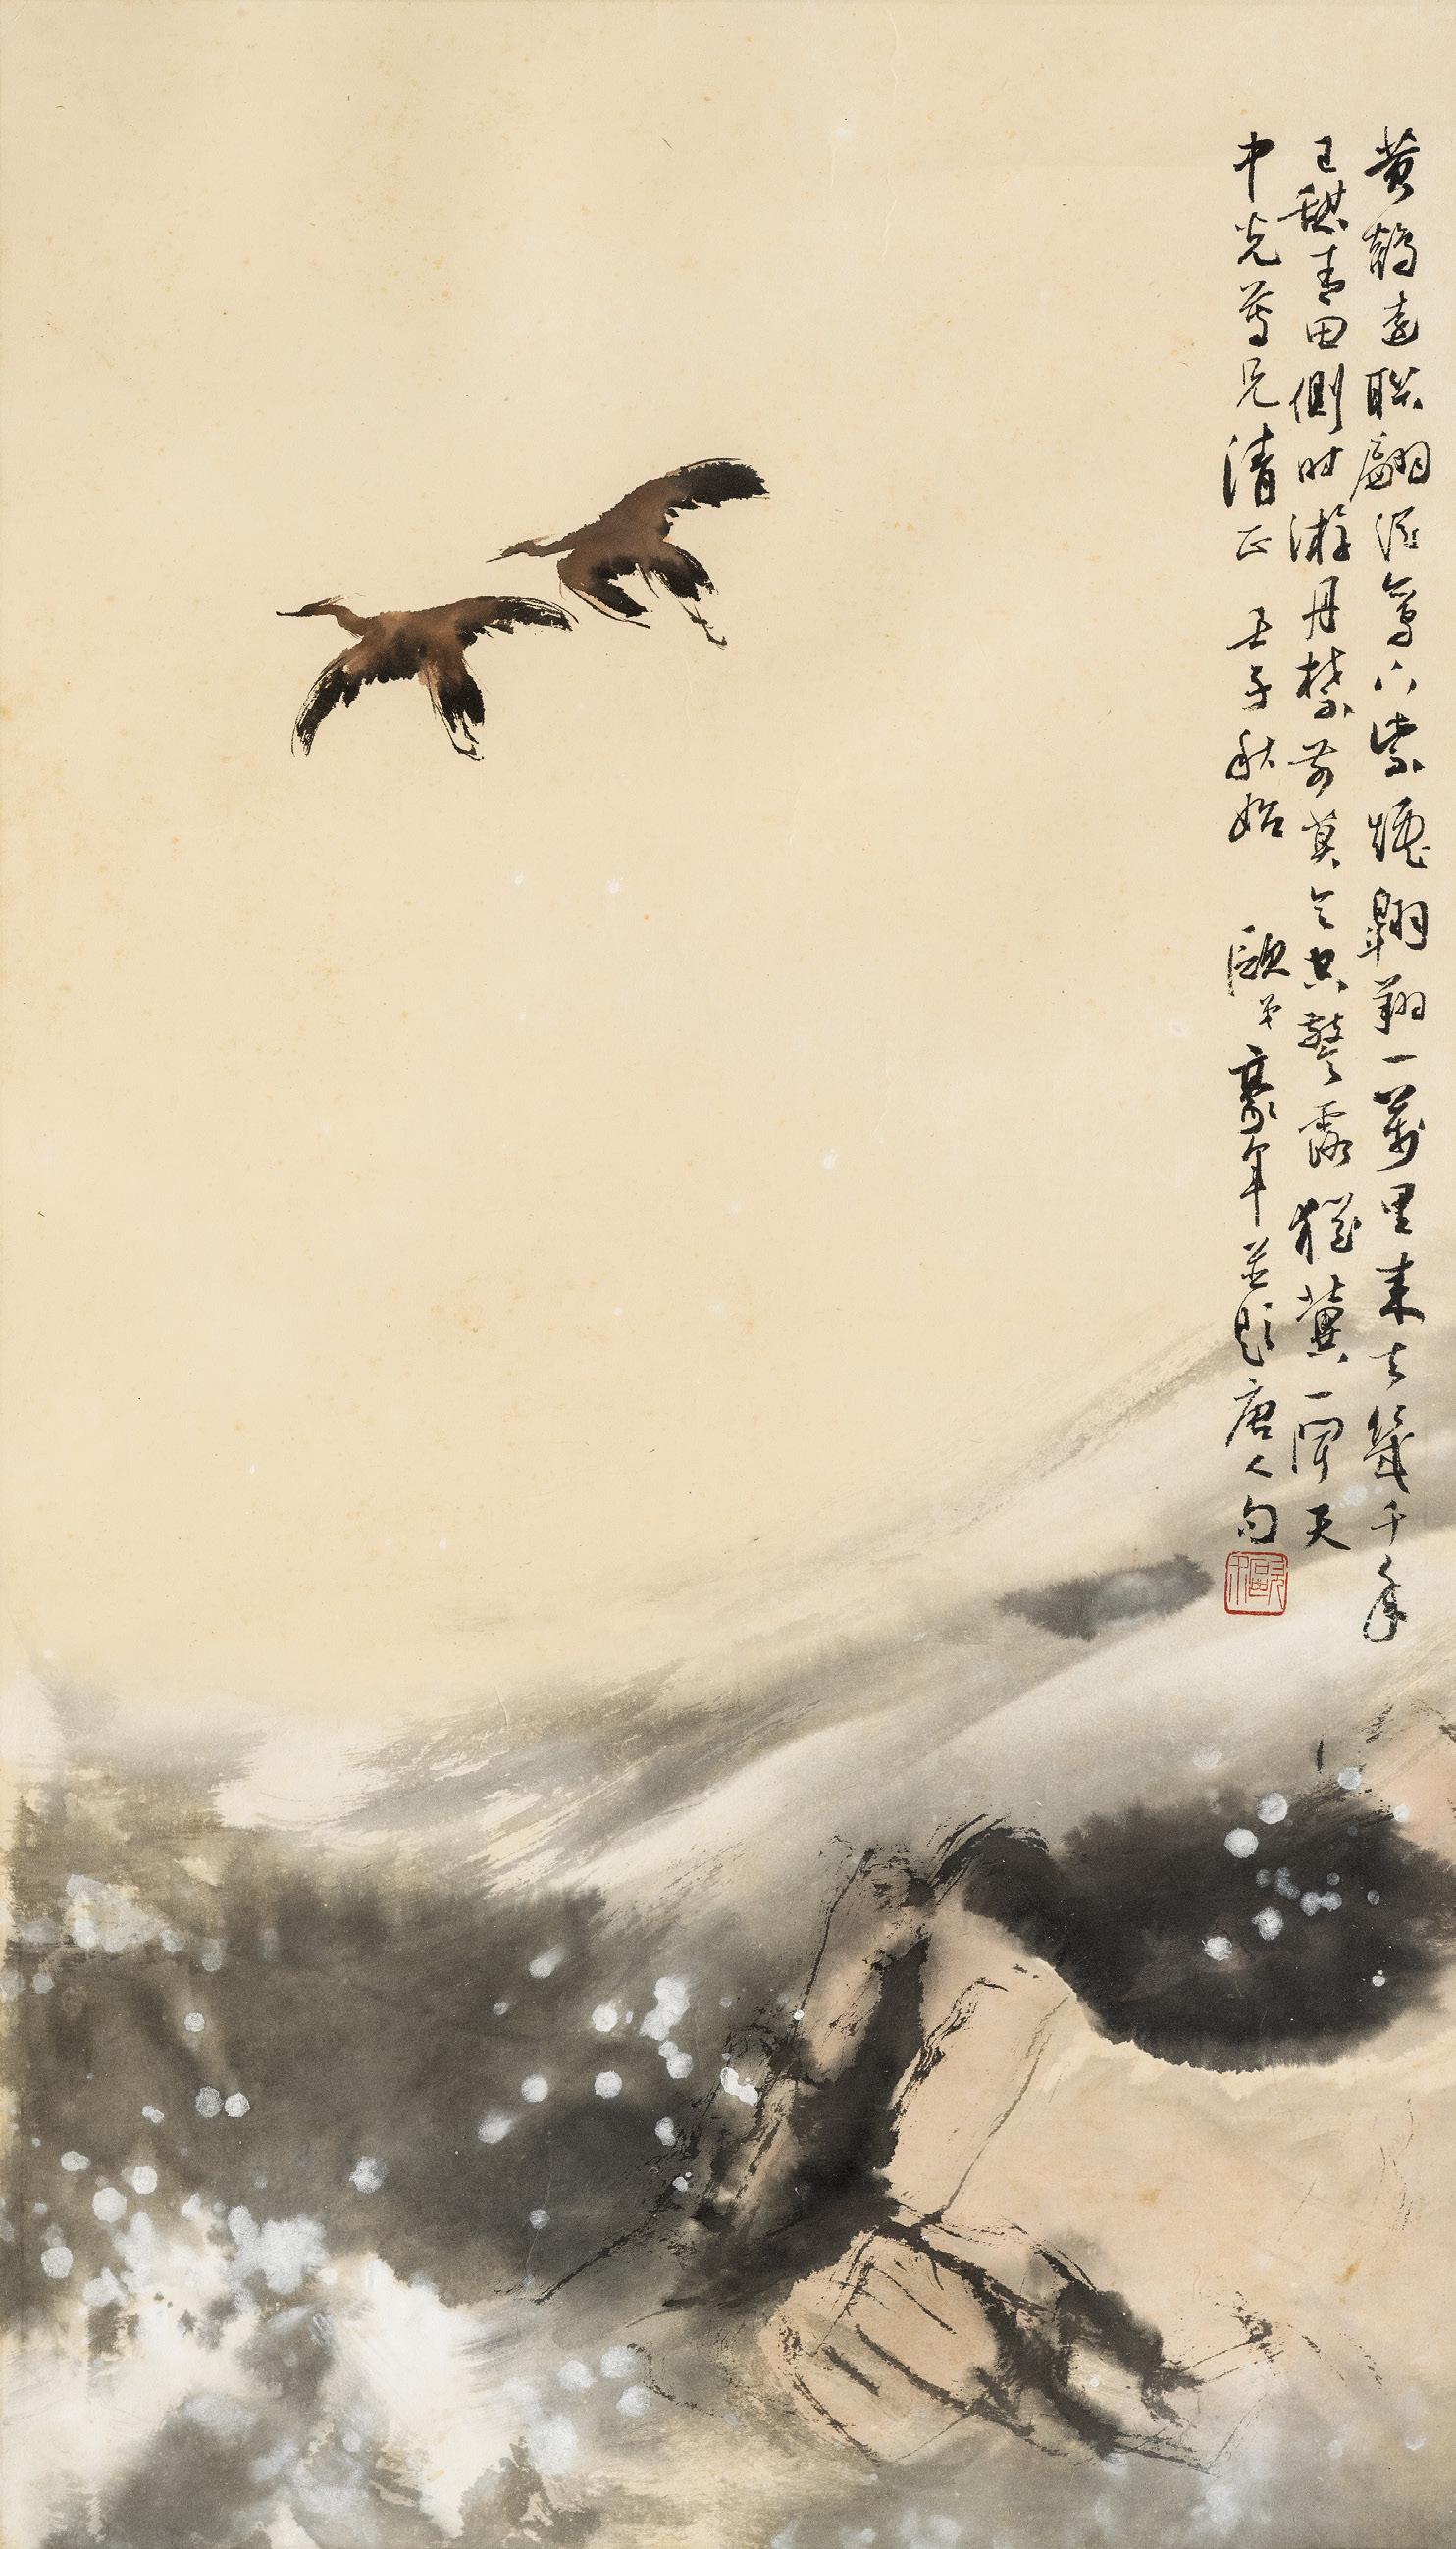 黃鶴遠聯翩從鸞下紫煙翱翔一萬里來去幾千年
已憩青田側時游丹禁前莫言空警露猶冀一聞天
中光尊兄清正 壬子秋始 歐弟豪年並題唐人句